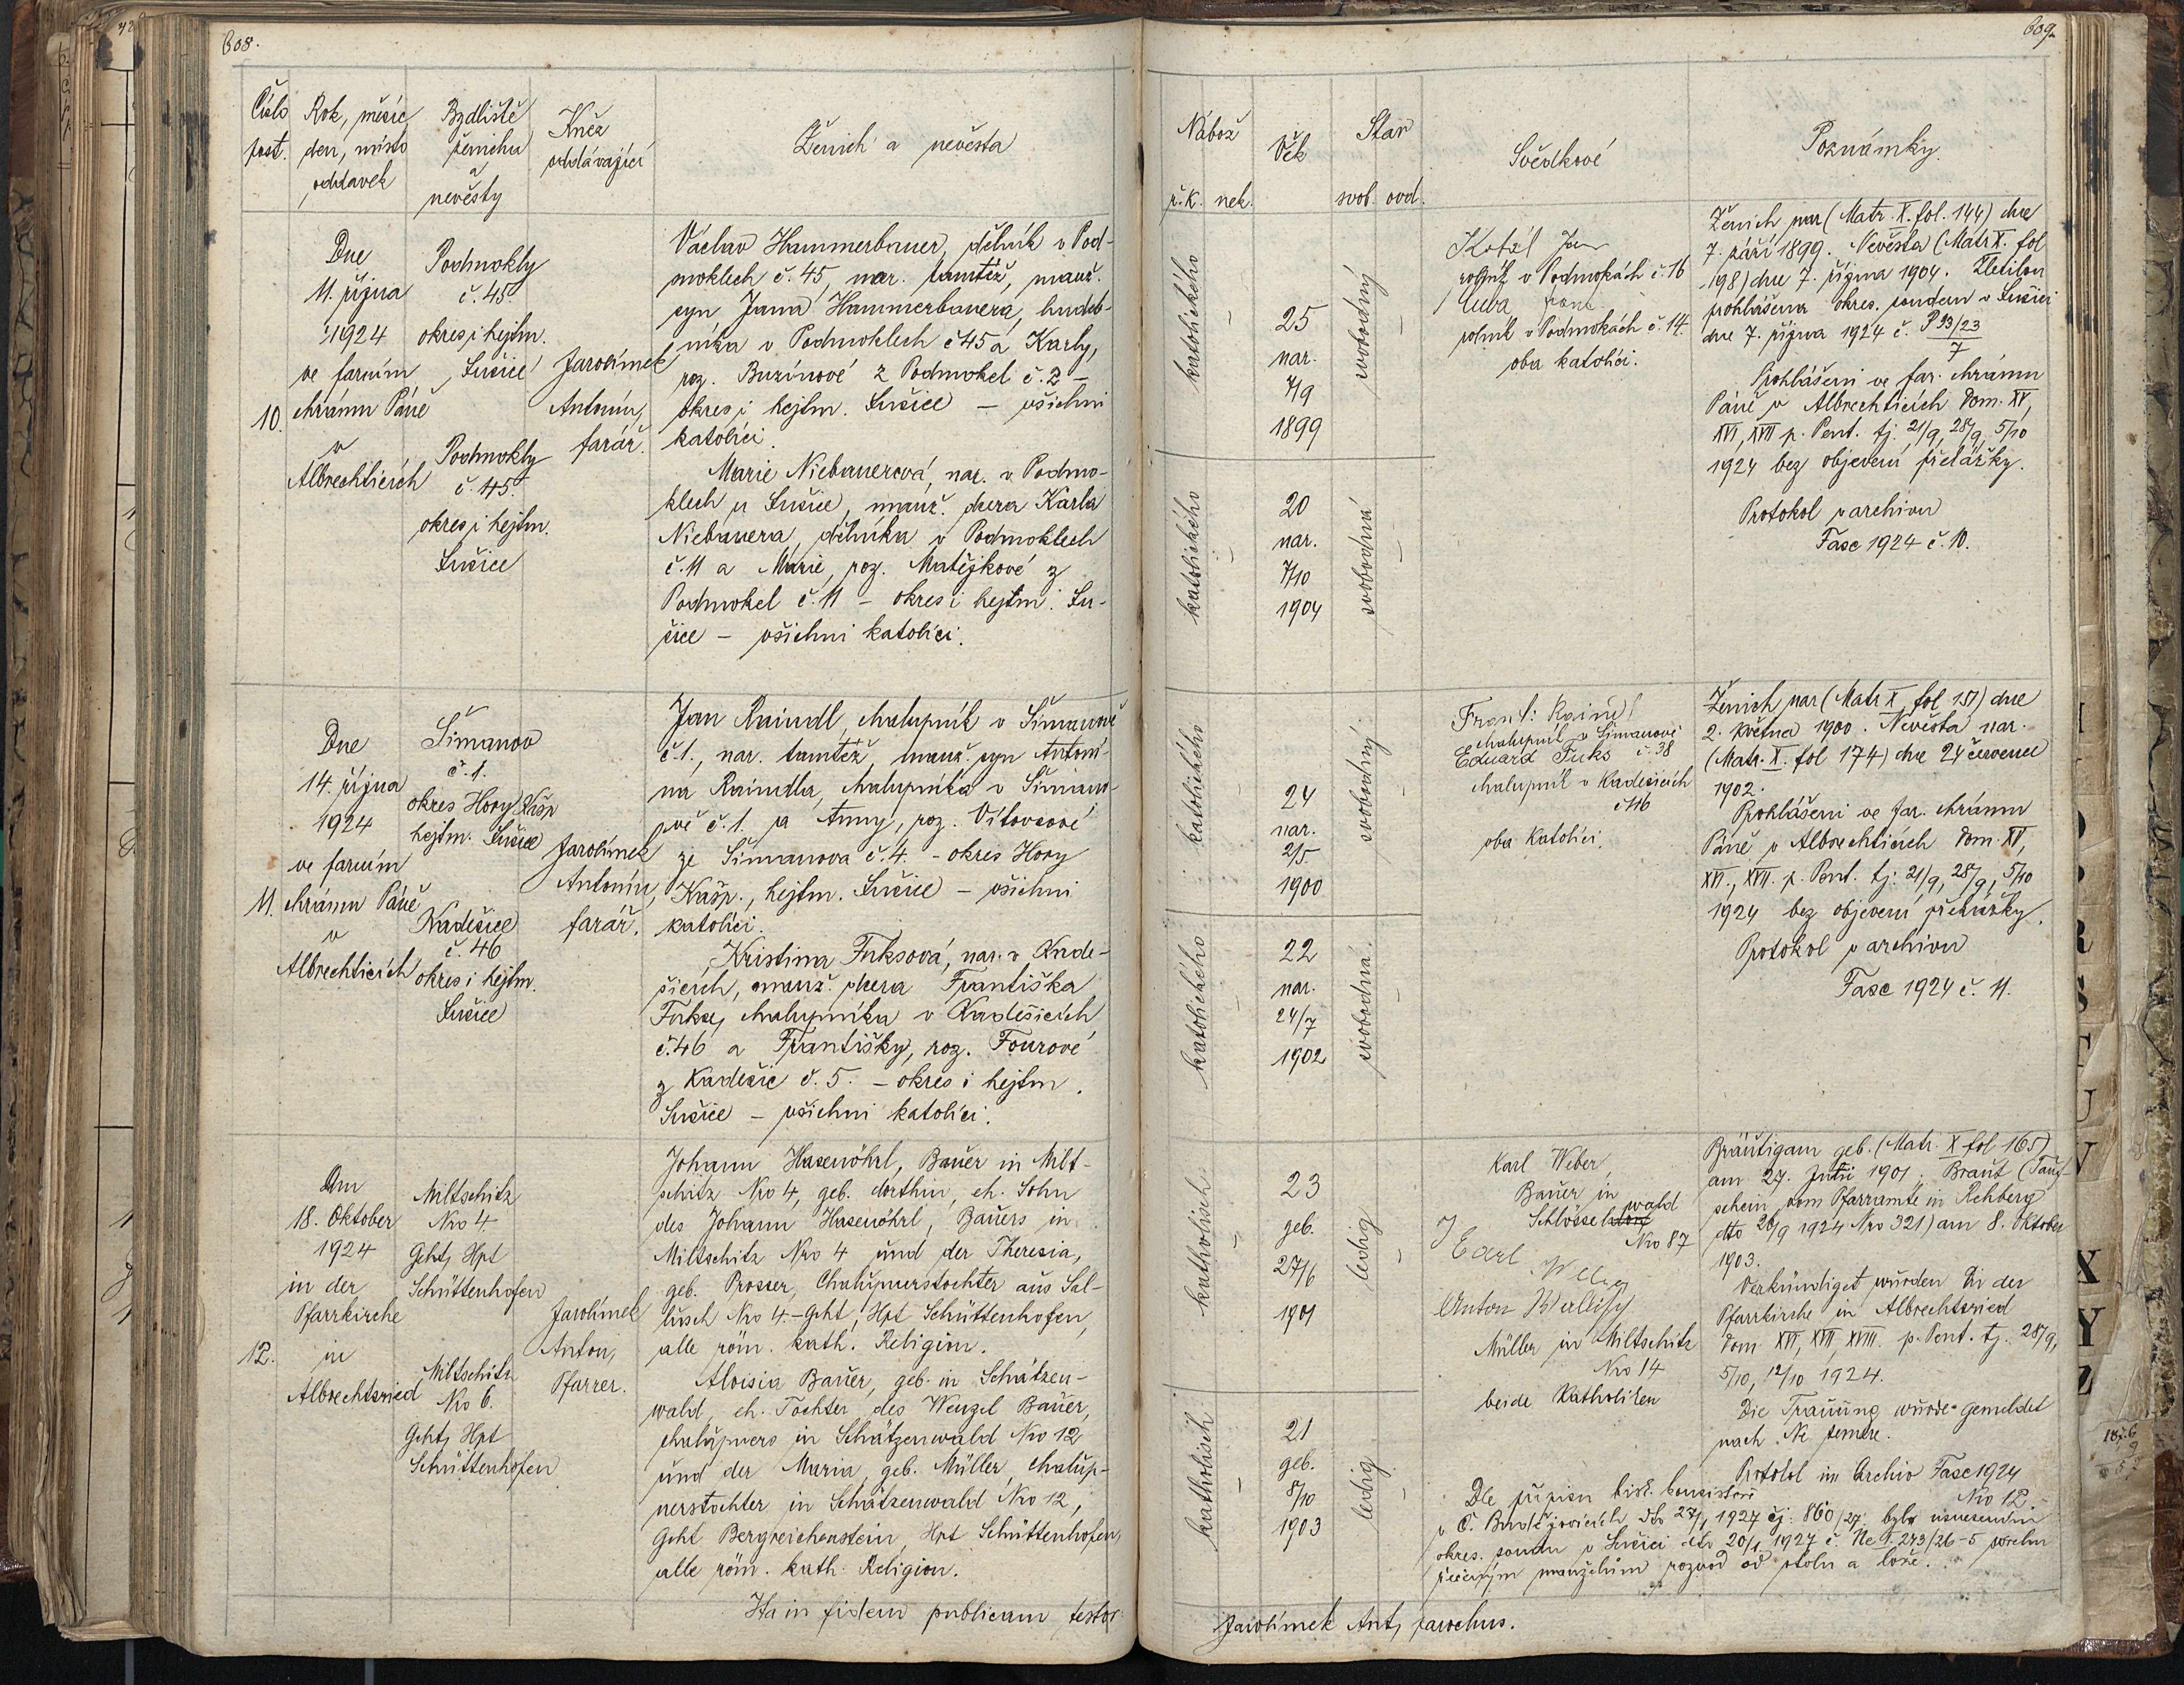 608.
Číslo
post.
Rok, měsíc
den, místo
oddavek
Bydliště
ženicha
a
nevěsty
Kněz
oddávající
Ženich a nevěsta
10.
Dne
11. října
1924
ve farním
chrámu Páně
v
Albrechticích
Podmokly
č. 45.
okres i hejtm.
Sušice
Podmokly
č. 45.
okres i hejtm.
Sušice
Jarolímek
Antonín,
farář.
Václav Hammerbauer, dělník v Pod-
moklech č. 45, nar. tamtéž, manž.
syn Jana Hammerbauera, hudeb-
níka v Podmoklech č 45 a Karly,
roz. Buzínové z Podmokel č. 2 –
okres i hejtm. Sušice – všichni
katolíci.
Marie Niebauerová, nar. v Podmo-
klech u Sušice, manž. dcera Karla
Niebauera, dělníka v Podmoklech
č. 11 a Marie, roz. Matějkové z
Podmokel č. 11 – okres i hejtm. Su-
šice – všichni katolíci.
11.
Dne
14. října
1924
ve farním
chrámu Páně
v
Albrechticích
Šimanov
č. 1.
okres Hory Kašp
hejtm. Sušice
Kadešice
č. 46
okres i hejtm.
Sušice
Jarolímek
Antonín,
farář.
Jan Raindl, chalupník v Šimanově
č. 1., nar. tamtéž, manž. syn Antoní-
na Raindla, chalupníka v Šimano-
vě č. 1. a Anny, roz. Vítovcové
ze Šimanova č. 4. – okres Hory
Kašp., hejtm. Sušice – všichni
katolíci.
Kristina Fuksová, nar. v Kade-
šicích, manž. dcera Františka
Fukse, chalupníka v Kadešicích
č. 46 a Františky, roz. Fourové
z Kadešic č. 5. – okres i hejtm.
Sušice – všichni katolíci.
12.
Am
18. Oktober
1924
in der
Pfarrkirche
in
Albrechtsried
Miltschitz
Nro 4.
Geht, Hpt
Schüttenhofen
Miltschitz
Nro 6.
Geht, Hpt
Schüttenhofen
Jarolímek
Anton,
Pfarrer.
Johann Hasenöhrl, Bauer in Milt-
schitz Nro 4, geb. dorthin, eh. Sohn
des Johann Hasenöhrl, Bauers in
Miltschitz Nro 4 und der Theresia,
geb. Prosser, Chalupnerstochter aus Sal-
lusch Nro 4. – Geht, Hpt Schüttenhofen,
alle röm. kath. Religion.
Aloisia Bauer, geb. in Schätzen-
wald, eh. Tochter des Wenzel Bauer,
chalupners in Schätzenwald Nro 12
und der Maria, geb. Müller, chalup-
nerstochter in Schätzenwald Nro 12,
Geht Bergreichenstein, Hpt Schüttenhofen,
alle röm. kath. Religion.
Ita in fidem publicam testor
609.
Nábož
ř. k. nek.
Věk
Stav
svob. ovd.
Svědkové
Poznámky.
katolického
25
nar.
7/9
1899
svobodný
katolického
20
nar.
7/10
1904
svobodná
Kotál Jan
rolník v Podmokách č. 16
rolník v Podmokách č. 14.
oba katolíci.
Ženich nar (Matr. X. fol. 144) dne
7. září 1899. Nevěsta (Matr X. fol
198) dne 7. října 1904. Zletilou
prohlášena okres. soudem v Sušici
dne 7. října 1924 č. P 93/23
7
Prohlášeni ve far. chrámu
Páně v Albrechticích Dom. XV,
XVI, XVII p. Pent. tj. 21/9, 28/9, 5/10
1924 bez objevení překážky.
Protokol v archivu
Fasc 1924 č. 10.
katolického
24
nar.
2/5
1900
svobodný
katolického
22
nar.
24/7
1902
svobodná.
Frant. Raindl
chalupník v Šimanově
č. 38
Eduard Fuks
chalupník v Kadešicích
č 46
oba katolíci.
Ženich nar (Matr X, fol 151) dne
2. května 1900. Nevěsta nar.
(Matr. X. fol 174) dne 24 července
1902.
Prohlášeni ve far. chrámu
Páně v Albrechticích Dom. XV,
XVI., XVII. p. Pent. tj. 21/9, 28/9, 5/10
1924 bez objevení překážky.
Protokol v archivu
Fasc 1924 č. 11.
katholisch
23
geb.
27/6
1901
ledig
katholisch
21
geb.
8/10
1903
ledig
Karl Weber,
Bauer in
Schlösselwald
Nro 87
Müller in Miltschitz
Nro 14
beide Katholiken
Bräutigam geb. (Matr. X fol 165)
am 27. Juni 1901. Braut (Tauf-
schein vom Pfarramte in Rehberg
dto 26/9 1924 Nro 321) am 8. Oktober
1903.
Verkündiget wurden in der
Pfarrkirche in Albrechtsried
Dom XVI, XVII, XVIII. p. Pent. tj. 28/9,
5/10, 12/10 1924.
Die Trauung wurde gemeldet
nach Ne temere.
Protokol im Archiv Fasc 1924
Nro 12.
Dle přípisu bisk. konsistoře
v Č. Budějovicích dto 27/1 1927 čj. 860/27 bylo usnesením
okres. soudu v Sušici dto 20/1 1927 č. Nc I. 273/26–5 povolen
řečeným manželům rozvod od stolu a lože.
Jarolímek Ant, parochus.